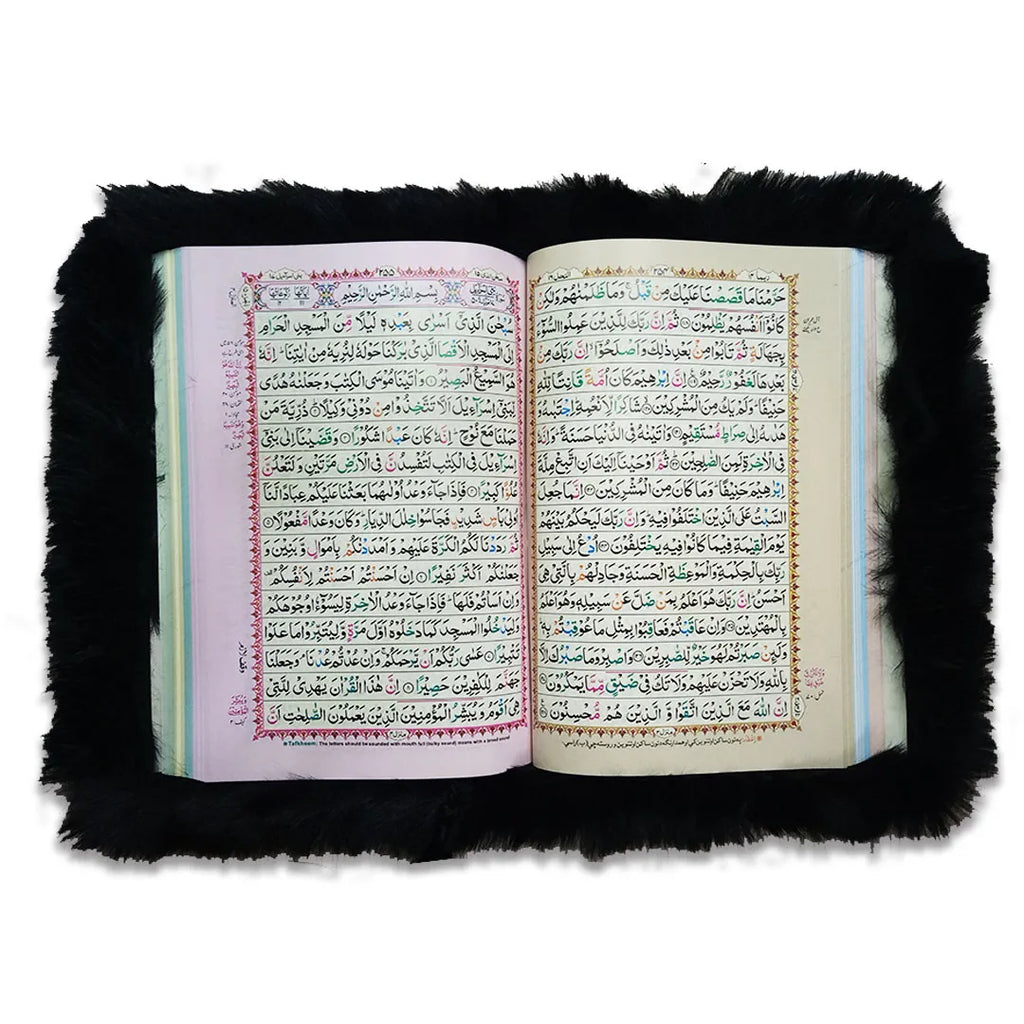 ربما ۱۴ ۲۵۴ النحل ۱۶
حَرَّمْنَا مَا قَصَصْنَا عَلَيْكَ مِنْ قَبْلُ ۚ وَمَا ظَلَمْنٰهُمْ وَلٰكِنْ
كَانُوْٓا اَنْفُسَهُمْ يَظْلِمُوْنَ ثُمَّ اِنَّ رَبَّكَ لِلَّذِيْنَ عَمِلُوا السُّوْٓءَ
بِجَهَالَةٍ ثُمَّ تَابُوْا مِنْۢ بَعْدِ ذٰلِكَ وَاَصْلَحُوْٓا ۙ اِنَّ رَبَّكَ مِنْۢ
بَعْدِهَا لَغَفُوْرٌ رَّحِيْمٌ اِنَّ اِبْرٰهِيْمَ كَانَ اُمَّةً قَانِتًا لِّلّٰهِ
حَنِيْفًا ؕ وَلَمْ يَكُ مِنَ الْمُشْرِكِيْنَ شَاكِرًا لِّاَنْعُمِهٖ ؕ اِجْتَبٰىهُ وَ
هَدٰىهُ اِلٰى صِرَاطٍ مُّسْتَقِيْمٍ وَاٰتَيْنٰهُ فِى الدُّنْيَا حَسَنَةً ؕ وَاِنَّهٗ
فِى الْاٰخِرَةِ لَمِنَ الصّٰلِحِيْنَ ثُمَّ اَوْحَيْنَآ اِلَيْكَ اَنِ اتَّبِعْ مِلَّةَ
اِبْرٰهِيْمَ حَنِيْفًا ؕ وَمَا كَانَ مِنَ الْمُشْرِكِيْنَ اِنَّمَا جُعِلَ
السَّبْتُ عَلَى الَّذِيْنَ اخْتَلَفُوْا فِيْهِ ؕ وَاِنَّ رَبَّكَ لَيَحْكُمُ بَيْنَهُمْ
يَوْمَ الْقِيٰمَةِ فِيْمَا كَانُوْا فِيْهِ يَخْتَلِفُوْنَ اُدْعُ اِلٰى سَبِيْلِ
رَبِّكَ بِالْحِكْمَةِ وَالْمَوْعِظَةِ الْحَسَنَةِ وَجَادِلْهُمْ بِالَّتِىْ هِىَ
اَحْسَنُ ؕ اِنَّ رَبَّكَ هُوَ اَعْلَمُ بِمَنْ ضَلَّ عَنْ سَبِيْلِهٖ وَهُوَ اَعْلَمُ
بِالْمُهْتَدِيْنَ وَاِنْ عَاقَبْتُمْ فَعَاقِبُوْا بِمِثْلِ مَا عُوْقِبْتُمْ بِهٖ ؕ
وَلَئِنْ صَبَرْتُمْ لَهُوَ خَيْرٌ لِّلصّٰبِرِيْنَ وَاصْبِرْ وَمَا صَبْرُكَ اِلَّا
بِاللّٰهِ وَلَا تَحْزَنْ عَلَيْهِمْ وَلَا تَكُ فِىْ ضَيْقٍ مِّمَّا يَمْكُرُوْنَ
اِنَّ اللّٰهَ مَعَ الَّذِيْنَ اتَّقَوْا وَّ الَّذِيْنَ هُمْ مُّحْسِنُوْنَ
۲۵۵
بِسْمِ اللّٰهِ الرَّحْمٰنِ الرَّحِيْمِ
سُبْحٰنَ الَّذِىْٓ اَسْرٰى بِعَبْدِهٖ لَيْلًا مِّنَ الْمَسْجِدِ الْحَرَامِ
اِلَى الْمَسْجِدِ الْاَقْصَا الَّذِىْ بٰرَكْنَا حَوْلَهٗ لِنُرِيَهٗ مِنْ اٰيٰتِنَا ؕ اِنَّهٗ
هُوَ السَّمِيْعُ الْبَصِيْرُ وَاٰتَيْنَا مُوْسَى الْكِتٰبَ وَجَعَلْنٰهُ هُدًى
لِّبَنِىْٓ اِسْرَآءِيْلَ اَلَّا تَتَّخِذُوْا مِنْ دُوْنِىْ وَكِيْلًا ذُرِّيَّةَ مَنْ
حَمَلْنَا مَعَ نُوْحٍ ؕ اِنَّهٗ كَانَ عَبْدًا شَكُوْرًا وَقَضَيْنَآ اِلٰى بَنِىْٓ
اِسْرَآءِيْلَ فِى الْكِتٰبِ لَتُفْسِدُنَّ فِى الْاَرْضِ مَرَّتَيْنِ وَلَتَعْلُنَّ
عُلُوًّا كَبِيْرًا فَاِذَا جَآءَ وَعْدُ اُوْلٰىهُمَا بَعَثْنَا عَلَيْكُمْ عِبَادًا لَّنَآ
اُولِىْ بَاْسٍ شَدِيْدٍ فَجَاسُوْا خِلٰلَ الدِّيَارِ ؕ وَكَانَ وَعْدًا مَّفْعُوْلًا
ثُمَّ رَدَدْنَا لَكُمُ الْكَرَّةَ عَلَيْهِمْ وَاَمْدَدْنٰكُمْ بِاَمْوَالٍ وَّبَنِيْنَ وَ
جَعَلْنٰكُمْ اَكْثَرَ نَفِيْرًا اِنْ اَحْسَنْتُمْ اَحْسَنْتُمْ لِاَنْفُسِكُمْ
وَاِنْ اَسَاْتُمْ فَلَهَا ؕ فَاِذَا جَآءَ وَعْدُ الْاٰخِرَةِ لِيَسُوْٓءٗا وُجُوْهَكُمْ
وَلِيَدْخُلُوا الْمَسْجِدَ كَمَا دَخَلُوْهُ اَوَّلَ مَرَّةٍ وَّلِيُتَبِّرُوْا مَا عَلَوْا
تَتْبِيْرًا عَسٰى رَبُّكُمْ اَنْ يَّرْحَمَكُمْ ۚ وَاِنْ عُدْتُّمْ عُدْنَا ۘ وَجَعَلْنَا
جَهَنَّمَ لِلْكٰفِرِيْنَ حَصِيْرًا اِنَّ هٰذَا الْقُرْاٰنَ يَهْدِىْ لِلَّتِىْ
هِىَ اَقْوَمُ وَيُبَشِّرُ الْمُؤْمِنِيْنَ الَّذِيْنَ يَعْمَلُوْنَ الصّٰلِحٰتِ اَنَّ
منزل ۴
Tafkheem: The letters should be sounded with mouth full (bulky sound) means with a broad sound